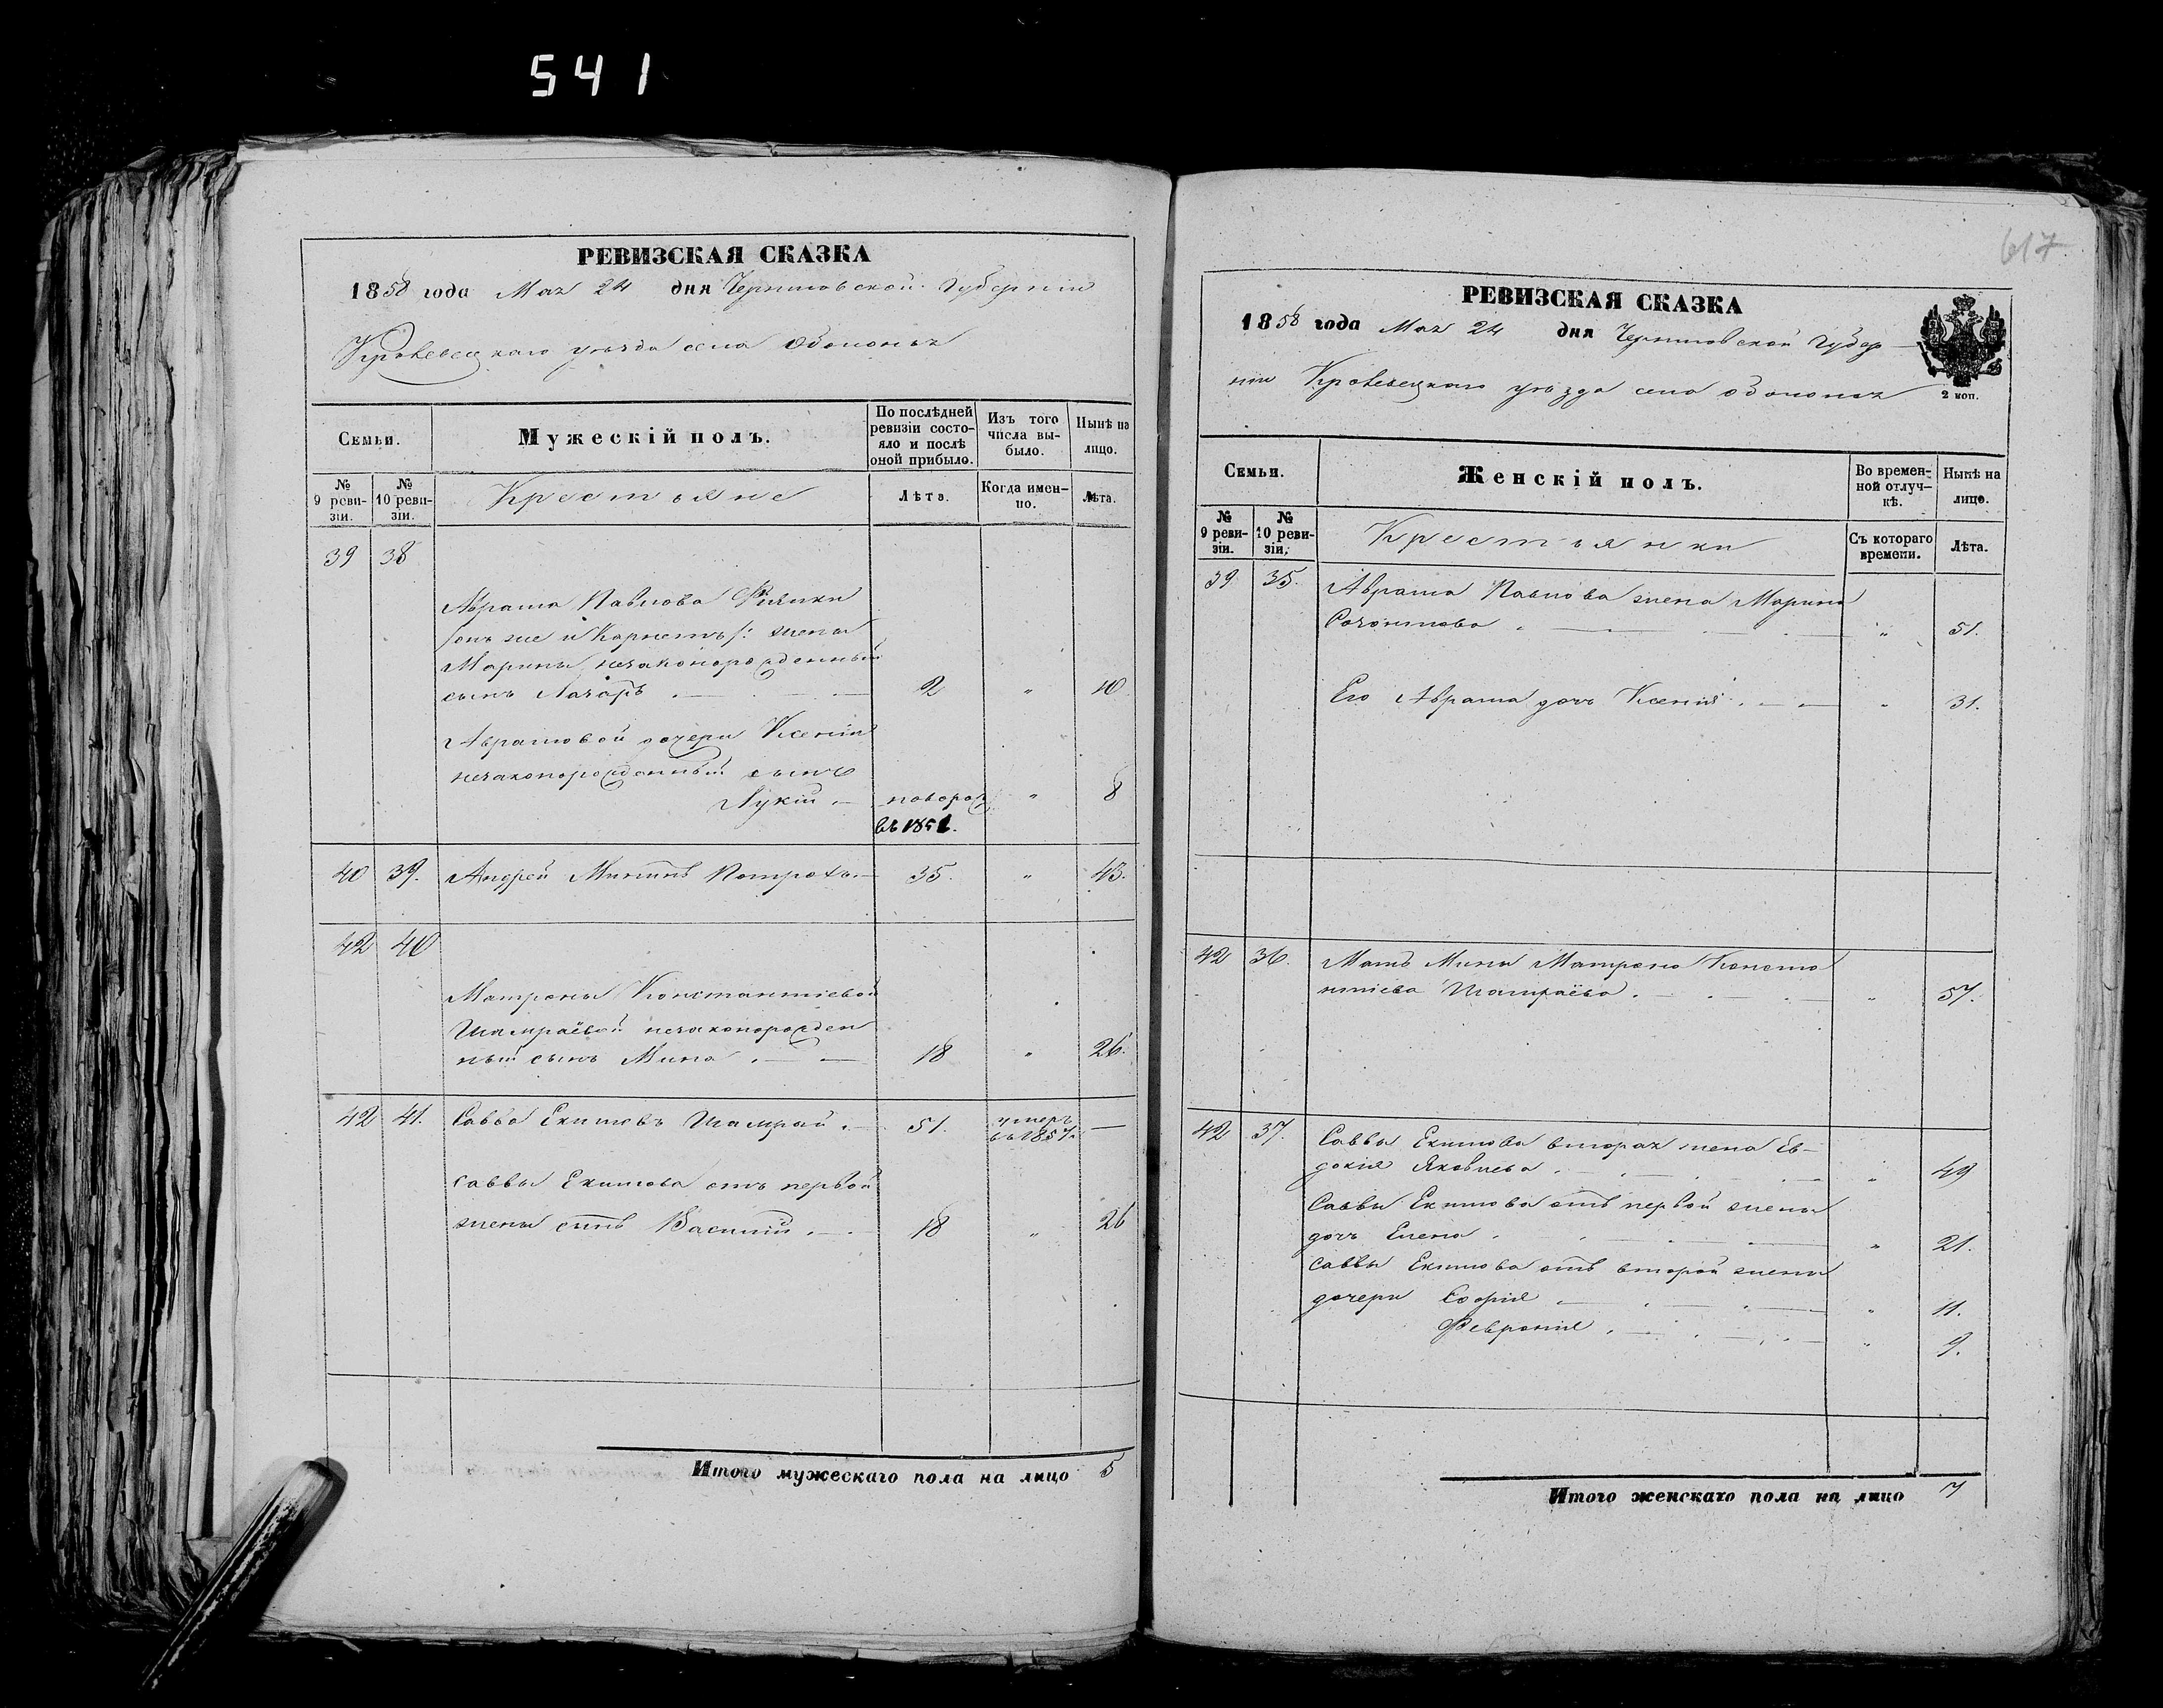 541
РЕВИЗСКАЯ СКАЗКА
1858 года Мая 24 дня Черниговской Губернии
Кролевецкаго уезда села Оболонья
Семьи.
Мужескій полъ.
По послѣдней ревизіи состояло и послѣ оной прибыло.
Изъ того числа выбыло.
Нынѣ на лицо.
№ 9 ревизіи.
№ 10 ревизіи.
Крестьяне
Лѣта.
Когда именно.
Лѣта.
39 38
Аврама Павлова
онъ же и жены
Марины незаконорожденный
сынъ Лазарь . — 2 " 10
Аврамовой дочери Ксеніи
незаконорожденный сынъ
Лукій . — новорож " 8
въ 1851.
40 39. Андрей Мининъ Потрохъ. — 35. " 43.
42 40
Матроны Константіевой
Шамраёвой незаконорожден
ный сынъ Мина . — — 18 " 26.
42 41. Савва Екимовъ Шамрай . — 51. умеръ въ 1857. —
Саввы Екимова отъ первой
жены сынъ Василій . — . 18 " 26
Итого мужескаго пола на лицо 5
617
РЕВИЗСКАЯ СКАЗКА
1858 года Мая 24 дня Черниговской Губер
ніи Кролевецкаго уезда села Оболонья
2 коп.
Семьи.
Женскій полъ.
Во временной отлучкѣ.
Нынѣ на лицо.
№ 9 ревизіи.
№ 10 ревизіи.
Крестьянки
Съ котораго времени.
Лѣта.
39. 35. Аврама Павлова жена Марина
" 51.
Его Аврама дочь Ксенія . — — " 31.
42 36. Мать Мины Матрона Конста
нтіева Шамраёва . — " 57.
42 37. Саввы Екимова вторая жена Ев-
докія Яковлева . — " 49
Саввы Екимова отъ первой жены
дочь Елена . — " 21.
Саввы Екимова отъ второй жены
дочери Софія . — " 11.
Февронія . — " 9.
Итого женскаго пола на лицо 7